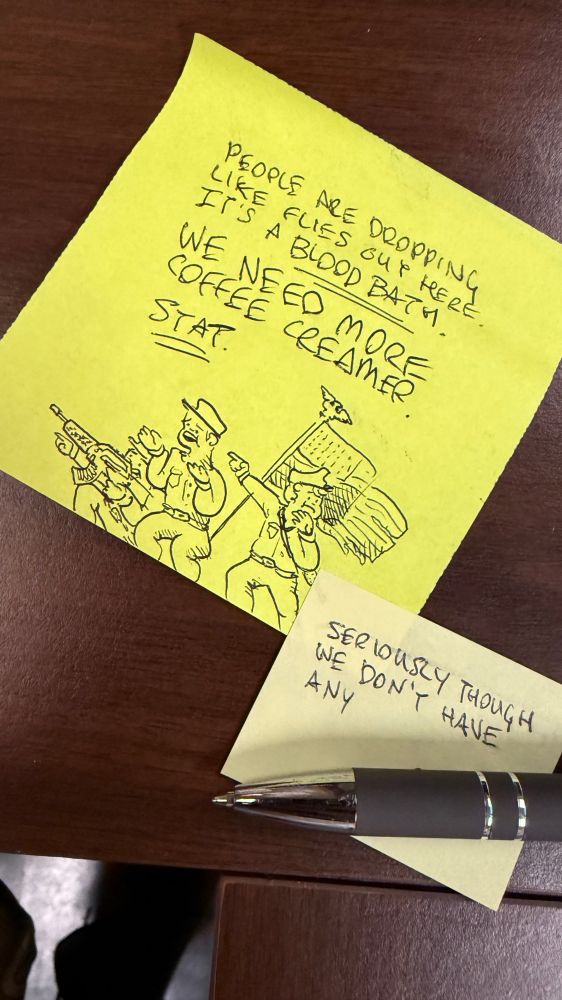 PEOPLE ARE DROPPING
LIKE FLIES OUT HERE.
IT'S A BLOOD BATH.
WE NEED MORE
COFFEE CREAMER.
STAT.
SERIOUSLY THOUGH
WE DON'T HAVE
ANY